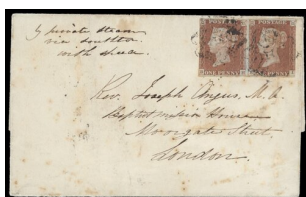 by private steam
via
with
POSTAGE POSTAGE
ONE PENNY PENNY
Rev. Joseph Angus, M.A.
Baptist Mission House
Moorgate Street,
London